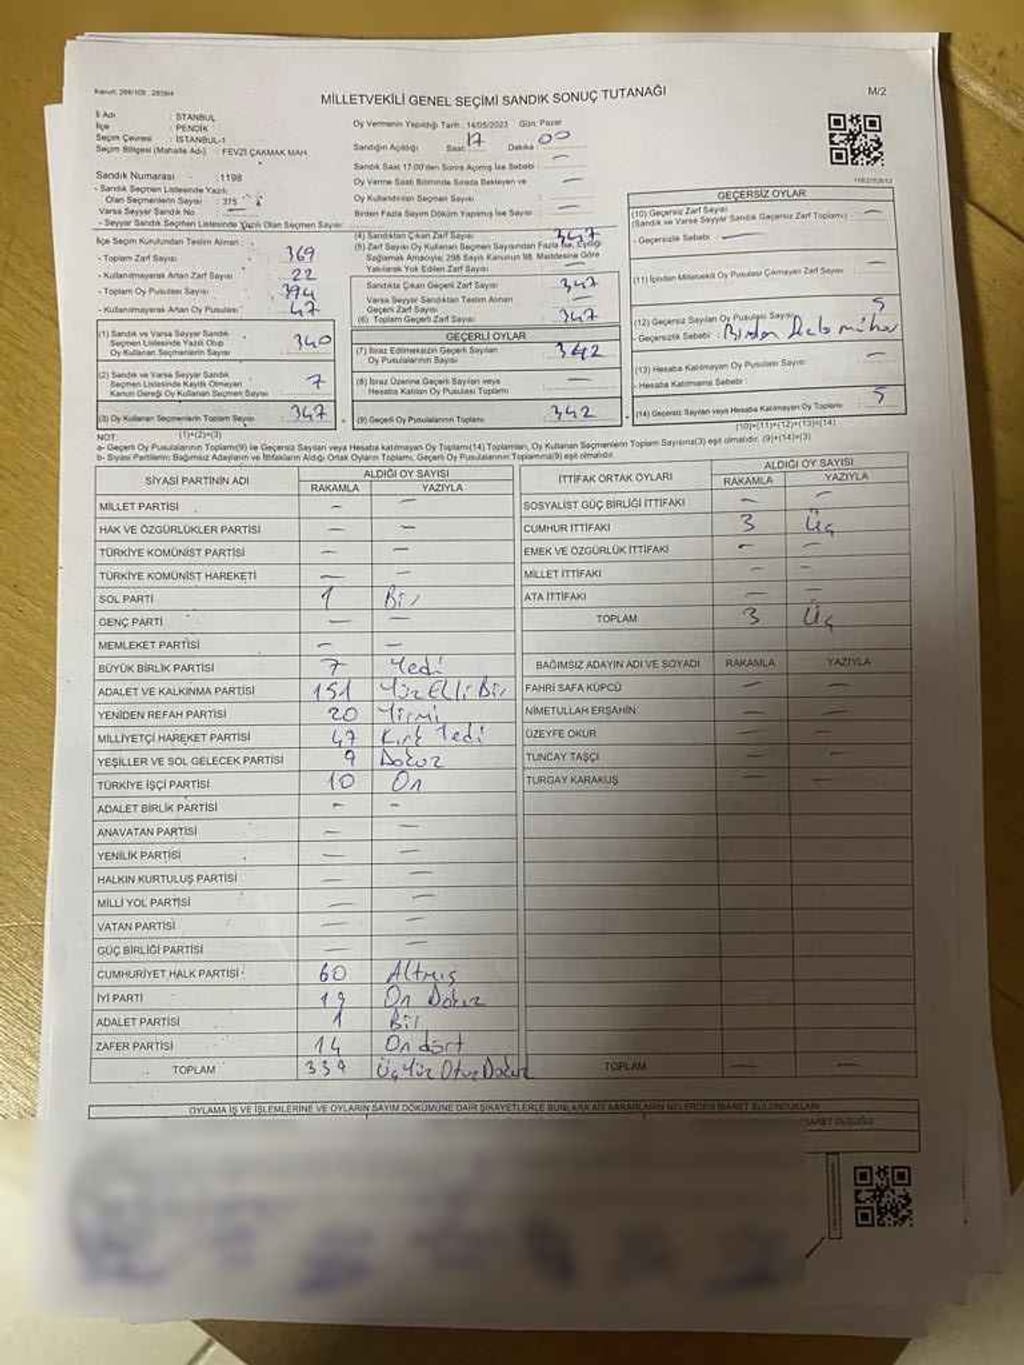 MİLLETVEKİLİ GENEL SEÇİMİ SANDIK SONUÇ TUTANAĞI
M/2
İl Adı : İSTANBUL
İlçe : PENDİK
Seçim Çevresi : İSTANBUL-1
Seçim Bölgesi (Mahalle Adı) : FEVZİ ÇAKMAK MAH.
Oy Vermenin Yapıldığı Tarih : 14/05/2023 Gün: Pazar
Sandığın Açıldığı Saat: 17 Dakika: 00
Sandık Saat 17:00'den Sonra Açılmış İse Sebebi : —
Oy Verme Saati Bitiminde Sırada Bekleyen ve —
Oy Kullandırılan Seçmen Sayısı :
Birden Fazla Sayım Döküm Yapılmış İse Sayısı : —
Sandık Numarası : 1198
- Sandık Seçmen Listesinde Yazılı
Olan Seçmenlerin Sayısı : 375
Varsa Seyyar Sandık No : —
- Seyyar Sandık Seçmen Listesinde Yazılı Olan Seçmen Sayısı:
İlçe Seçim Kurulundan Teslim Alınan :
- Toplam Zarf Sayısı : 369
- Kullanılmayarak Artan Zarf Sayısı : 22
- Toplam Oy Pusulası Sayısı : 394
- Kullanılmayarak Artan Oy Pusulası : 47
(1) Sandık ve Varsa Seyyar Sandık
Seçmen Listesinde Yazılı Olup
Oy Kullanan Seçmenlerin Sayısı 340
(2) Sandık ve Varsa Seyyar Sandık
Seçmen Listesinde Kayıtlı Olmayan
Kanun Gereği Oy Kullanan Seçmen Sayısı 7
(3) Oy Kullanan Seçmenlerin Toplam Sayısı 347
(1)+(2)=(3)
(4) Sandıktan Çıkan Zarf Sayısı : 347
(5) Zarf Sayısı Oy Kullanan Seçmen Sayısından Fazla İse, Eşitliği
Sağlamak Amacıyla; 298 Sayılı Kanunun 98. Maddesine Göre
Yakılarak Yok Edilen Zarf Sayısı : —
Sandıkta Çıkan Geçerli Zarf Sayısı : 347
Varsa Seyyar Sandıktan Teslim Alınan
Geçerli Zarf Sayısı : —
(6) Toplam Geçerli Zarf Sayısı : 347
GEÇERLİ OYLAR
(7) İtiraz Edilmeksizin Geçerli Sayılan
Oy Pusulalarının Sayısı 342
(8) İtiraz Üzerine Geçerli Sayılan veya
Hesaba Katılan Oy Pusulası Toplamı —
(9) Geçerli Oy Pusulalarının Toplamı 342
GEÇERSİZ OYLAR
(10) Geçersiz Zarf Sayısı
(Sandık ve Varsa Seyyar Sandık Geçersiz Zarf Toplamı) : —
- Geçersizlik Sebebi : —
(11) İçinden Milletvekili Oy Pusulası Çıkmayan Zarf Sayısı : —
(12) Geçersiz Sayılan Oy Pusulası Sayısı : 5
- Geçersizlik Sebebi : Birden fazla mühür
(13) Hesaba Katılmayan Oy Pusulası Sayısı : —
- Hesaba Katılmama Sebebi :
(14) Geçersiz Sayılan veya Hesaba Katılmayan Oy Toplamı : 5
(10)+(11)+(12)+(13)=(14)
NOT:
a- Geçerli Oy Pusulalarının Toplamı(9) ile Geçersiz Sayılan veya Hesaba katılmayan Oy Toplamı(14) Toplamları, Oy Kullanan Seçmenlerin Toplam Sayısına(3) eşit olmalıdır. (9)+(14)=(3)
b- Siyasi Partilerin; Bağımsız Adayların ve İttifakların Aldığı Ortak Oyların Toplamı, Geçerli Oy Pusulalarının Toplamına(9) eşit olmalıdır.
SİYASİ PARTİNİN ADI ALDIĞI OY SAYISI
RAKAMLA YAZIYLA
MİLLET PARTİSİ — —
HAK VE ÖZGÜRLÜKLER PARTİSİ — —
TÜRKİYE KOMÜNİST PARTİSİ — —
TÜRKİYE KOMÜNİST HAREKETİ — —
SOL PARTİ 1 Bir
GENÇ PARTİ — —
MEMLEKET PARTİSİ — —
BÜYÜK BİRLİK PARTİSİ 7 Yedi
ADALET VE KALKINMA PARTİSİ 151 Yüz Elli Bir
YENİDEN REFAH PARTİSİ 20 Yirmi
MİLLİYETÇİ HAREKET PARTİSİ 47 Kırk Yedi
YEŞİLLER VE SOL GELECEK PARTİSİ 9 Dokuz
TÜRKİYE İŞÇİ PARTİSİ 10 On
ADALET BİRLİK PARTİSİ - -
ANAVATAN PARTİSİ — —
YENİLİK PARTİSİ — —
HALKIN KURTULUŞ PARTİSİ — —
MİLLİ YOL PARTİSİ — —
VATAN PARTİSİ — —
GÜÇ BİRLİĞİ PARTİSİ — —
CUMHURİYET HALK PARTİSİ 60 Altmış
İYİ PARTİ 19 On Dokuz
ADALET PARTİSİ 1 Bir
ZAFER PARTİSİ 14 On dört
TOPLAM 339 Üç Yüz Otuz Dokuz
İTTİFAK ORTAK OYLARI ALDIĞI OY SAYISI
RAKAMLA YAZIYLA
SOSYALİST GÜÇ BİRLİĞİ İTTİFAKI — —
CUMHUR İTTİFAKI 3 Üç
EMEK VE ÖZGÜRLÜK İTTİFAKI — —
MİLLET İTTİFAKI — —
ATA İTTİFAKI — —
TOPLAM 3 Üç
BAĞIMSIZ ADAYIN ADI VE SOYADI RAKAMLA YAZIYLA
FAHRİ SAFA KÜPCÜ — —
NİMETULLAH ERŞAHİN — —
ÜZEYFE OKUR — —
TUNCAY TAŞÇI — —
TURGAY KARAKUŞ — —
TOPLAM — —
OYLAMA İŞ VE İŞLEMLERİNE VE OYLARIN SAYIM DÖKÜMÜNE DAİR ŞİKAYETLERLE BUNLARA AİT KARARLARIN NELERDEN İBARET BULUNDUKLARI